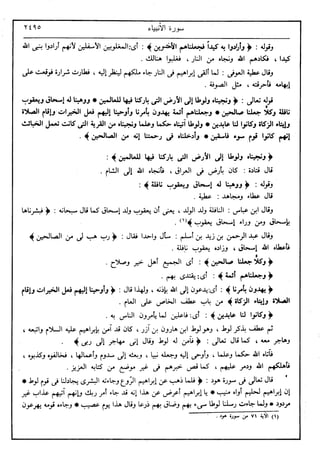 سورة الأنبياء ٢٤٩٥
وقوله : ﴿ وأرادوا به كيداً فجعلناهم الأخسرين ﴾ : أى : المغلوبين الأسفلين لأنهم أرادوا بنبى الله
كيدا ، فكادهم الله ونجاه من النار ، فغلبوا هنالك .
وقال عطية العوفى : لما ألقى إبراهيم فى النار جاء ملكهم لينظر إليه ، فطارت شرارة فوقعت على
إبهامه فأحرقته ، مثل الصوفة .
قوله تعالى : ﴿ ونجيناه ولوطا إلى الأرض التى باركنا فيها للعالمين * ووهبنا له إسحاق ويعقوب
نافلة وكلاً جعلنا صالحين * وجعلناهم أئمة يهدون بأمرنا وأوحينا إليهم فعل الخيرات وإقام الصلاة
وإيتاء الزكاة وكانوا لنا عابدين * ولوطا آتيناه حكما وعلما ونجيناه من القرية التى كانت تعمل الخبائث
إنهم كانوا قوم سوء فاسقين * وأدخلناه فى رحمتنا إنه من الصالحين ﴾ .
﴿ ونجيناه ولوطا إلى الأرض التى باركنا فيها للعالمين ﴾ :
قال قتادة : كان بأرض فى العراق ، فأنجاه الله إلى الشام .
وقوله : ﴿ ووهبنا له إسحاق ويعقوب نافلة ﴾ :
قال عطاء ومجاهد : عطية .
وقال ابن عباس : النافلة ولد الولد ، يعنى أن يعقوب ولد إسحاق كما قال سبحانه : ﴿ فبشرناها
بإسحاق ومن وراء إسحاق يعقوب ﴾ (١) .
وقال عبد الرحمن بن زيد بن أسلم : سأل واحدا فقال : ﴿ رب هب لى من الصالحين ﴾
فأعطاه الله إسحاق ، وزاده يعقوب نافلة .
﴿ وكلاً جعلنا صالحين ﴾ : أى الجميع أهل خير وصلاح .
﴿ وجعلناهم أئمة ﴾ : أى : يقتدى بهم .
﴿ يهدون بأمرنا ﴾ : أى : يدعون إلى الله بإذنه ، ولهذا قال : ﴿ وأوحينا إليهم فعل الخيرات وإقام
الصلاة وإيتاء الزكاة ﴾ من باب عطف الخاص على العام .
﴿ وكانوا لنا عابدين ﴾ : أى : فاعلين لما يأمرون الناس به .
ثم عطف بذكر لوط ، وهو لوط ابن هاران بن آزر ، كان قد آمن بإبراهيم عليه السلام واتبعه ،
وهاجر معه ، كما قال تعالى : ﴿ فآمن له لوط وقال إنى مهاجر إلى ربى ﴾ .
فآتاه الله حكما وعلما ، وأوحى إليه وجعله نبيا ، وبعثه إلى سدوم وأعمالها ، فخالفوه وكذبوه ،
فأهلكهم الله ودمر عليهم ، كما قص خبرهم فى غير موضع من كتابه العزيز .
قال تعالى فى سورة هود : ﴿ فلما ذهب عن إبراهيم الروع وجاءته البشرى يجادلنا فى قوم لوط *
إن إبراهيم لحليم أواه منيب * يا إبراهيم أعرض عن هذا إنه قد جاء أمر ربك وإنهم آتيهم عذاب غير
مردود * ولما جاءت رسلنا لوطا سىء بهم وضاق بهم ذرعا وقال هذا يوم عصيب * وجاءه قومه يهرعون
(١) الآية ٧١ من سورة هود .